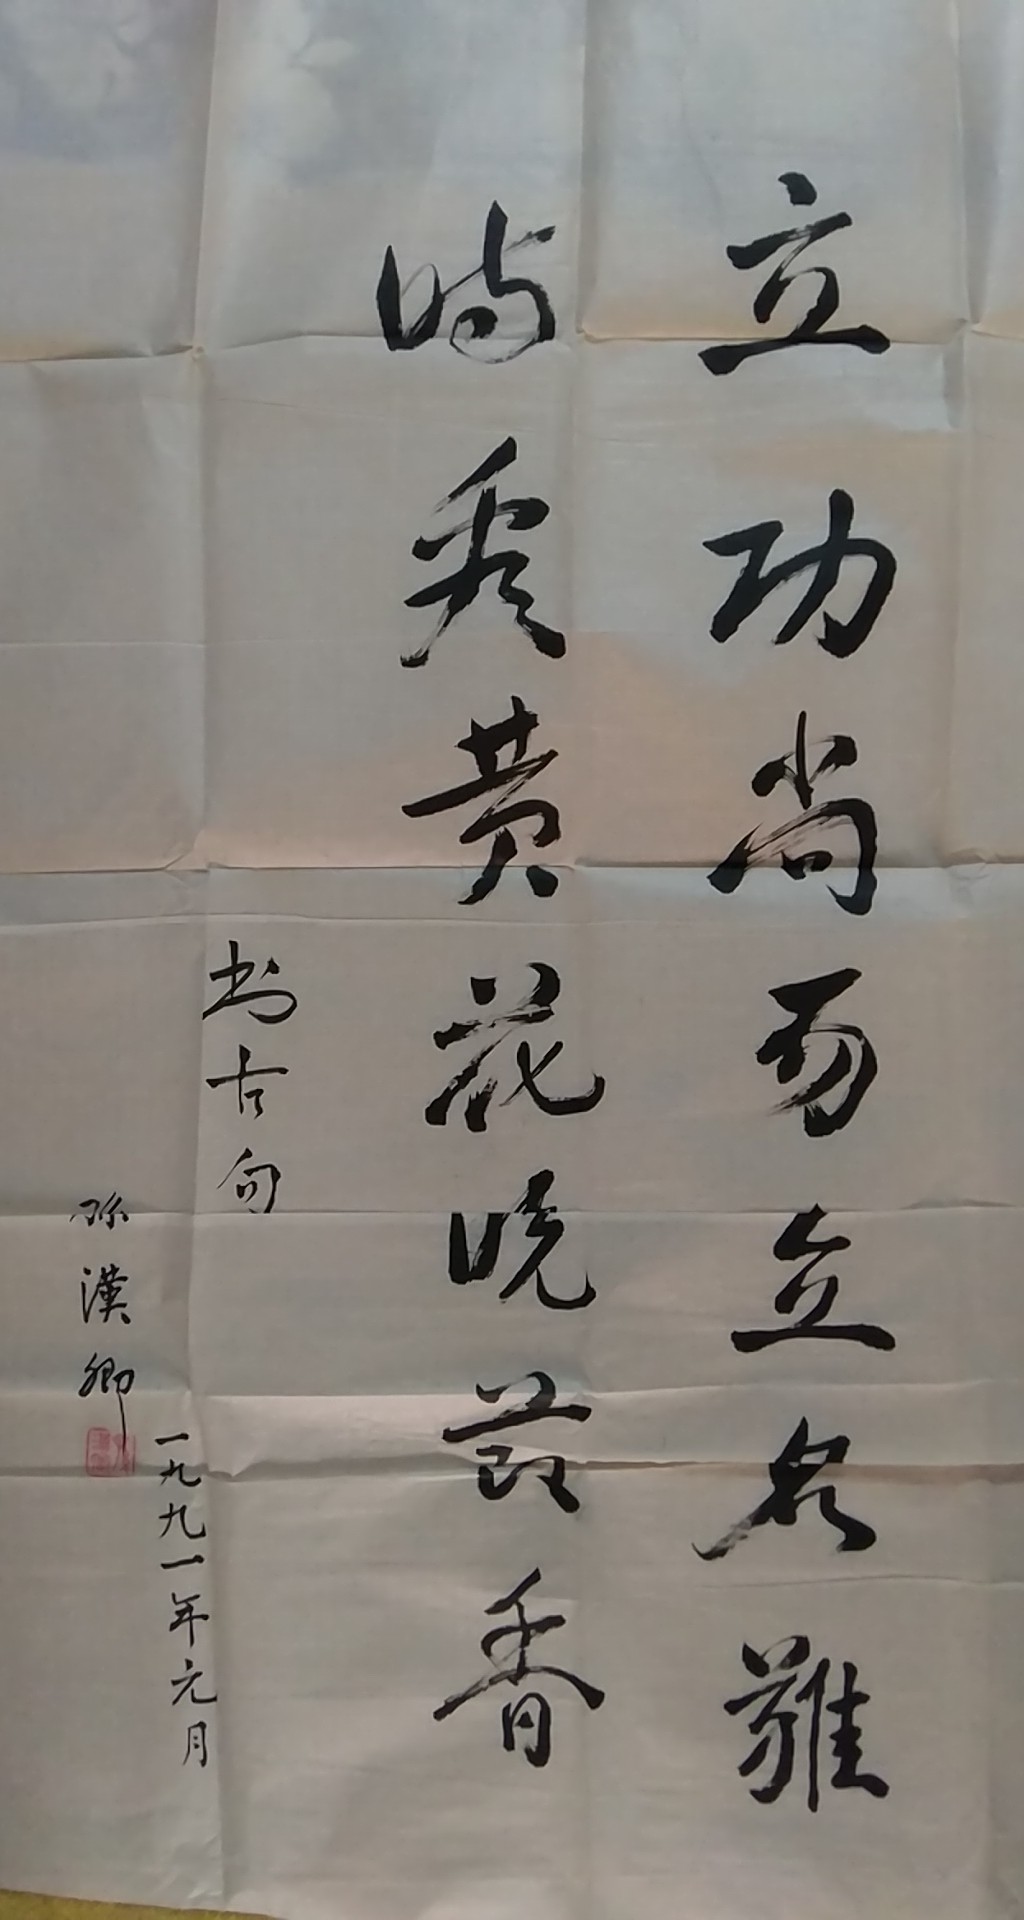 立功尚易立名难
时秀黄花晚节香
书古句
孙漢卿
一九九一年元月